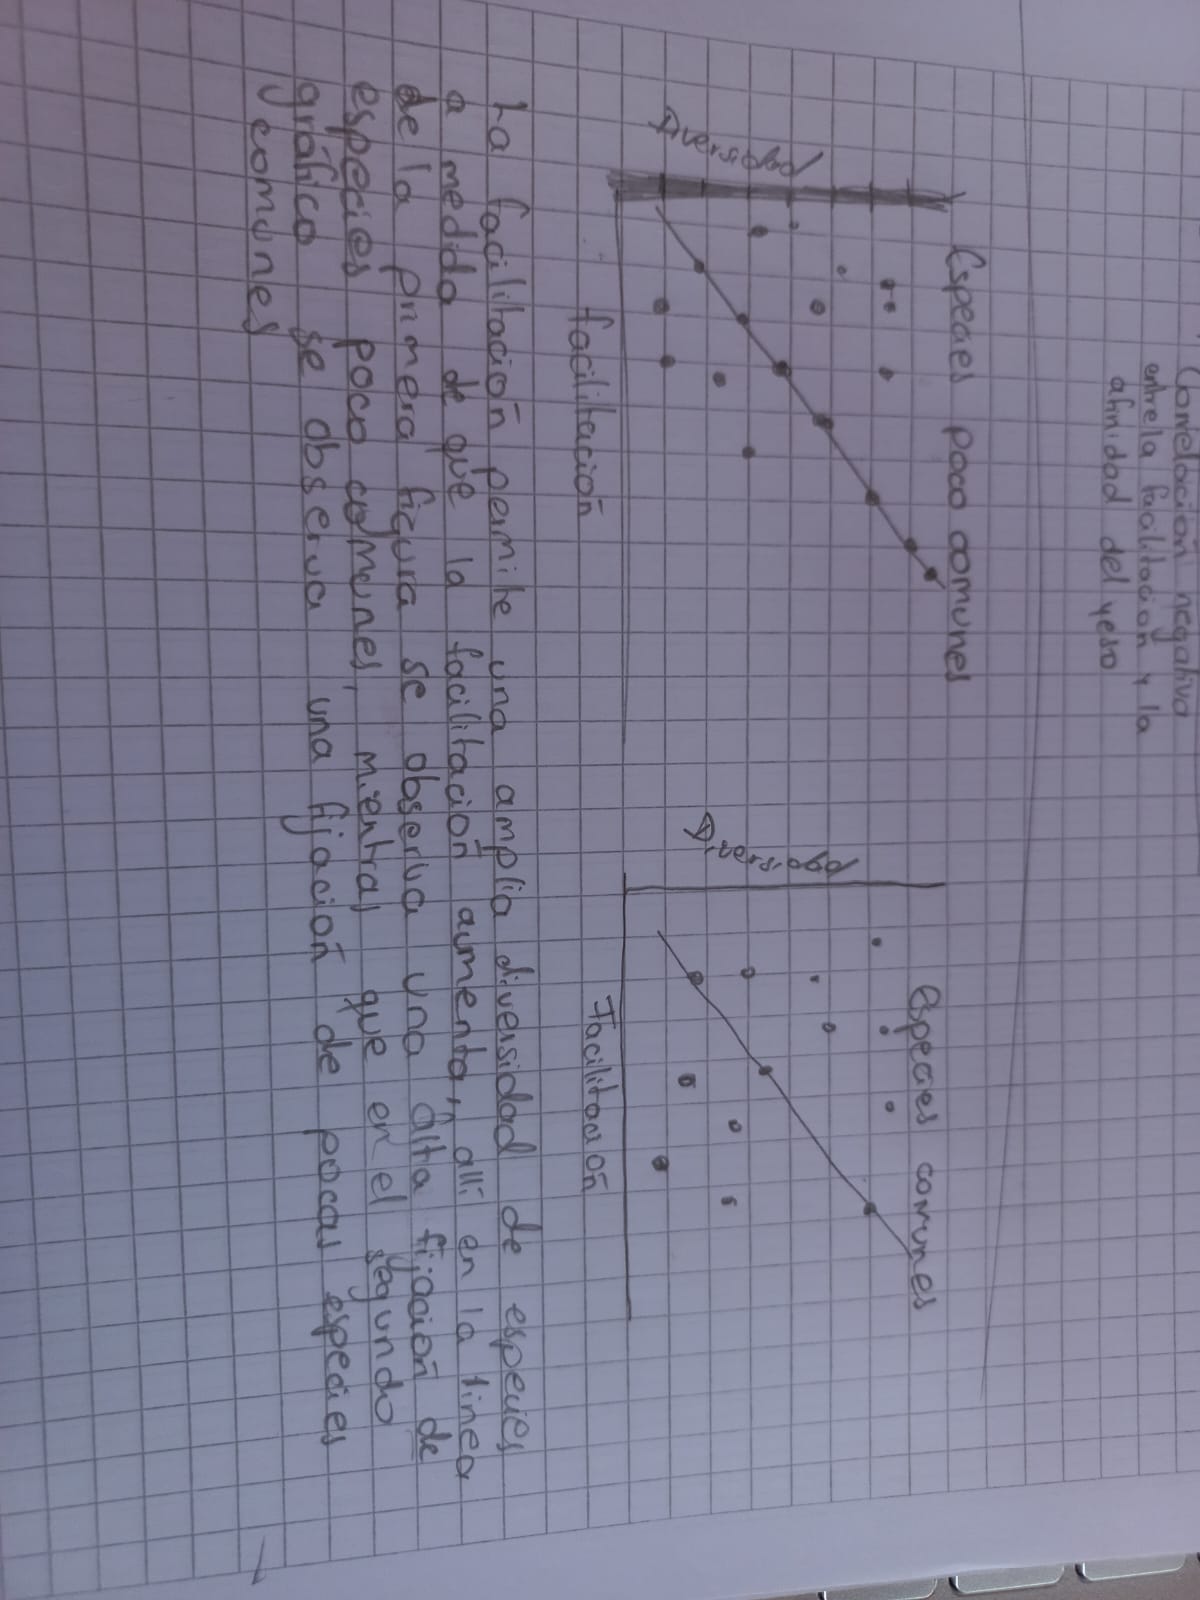 Correlación negativa
entre la facilitación y la
afinidad del yeso
Especies poco comunes
Diversidad
facilitación
especies comunes
Diversidad
Facilitación
La facilitación permite una amplia diversidad de especies
a medida de que la facilitación aumenta, allí en la linea
de la primera figura se observa una alta fijación de
especies poco comunes, mientras que en el segundo
gráfico se observa una fijación de pocas especies
y comunes